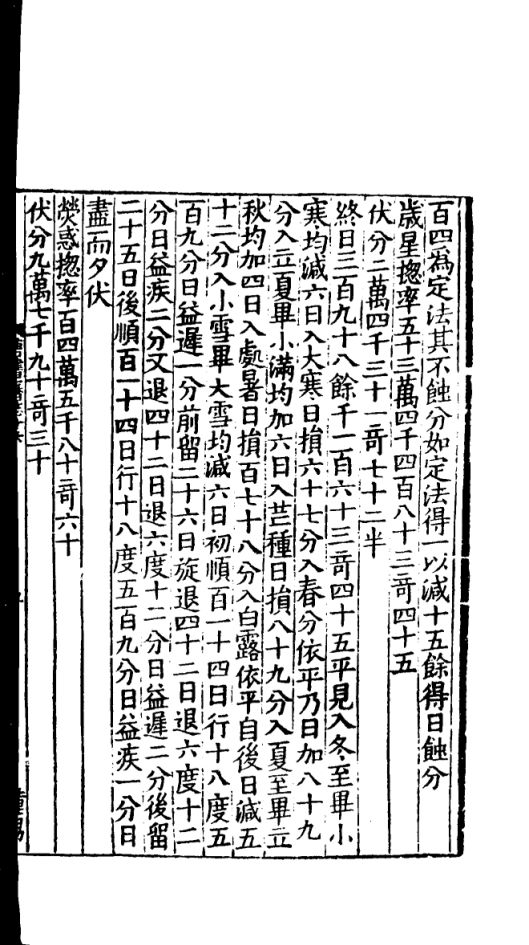 百四為定法其不蝕分如定法得一以減十五餘得日蝕分
歲星揔率五十三萬四千四百八十三竒四十五
伏分二萬四千三十一竒七十二半
終日三百九十八餘千一百六十三竒四十五平見入冬至畢小
寒均減六日入大寒日損六十七分入春分依平乃日加八十九
分入立夏畢小滿均加六日入芒種日損八十九分入夏至畢立
秋均加四日入處暑日損百七十八分入白露依平自後日減五
十二分入小雪畢大雪均減六日初順百一十四日行十八度五
百九分日益遲一分前留二十六日旋退四十二日退六度十二
分日益疾二分又退四十二日退六度十二分日益遲二分後留
二十五日後順百一十四日行十八度五百九分日益疾一分日
盡而夕伏
熒惑揔率百四萬五千八十竒六十
伏分九萬七千九十竒三十